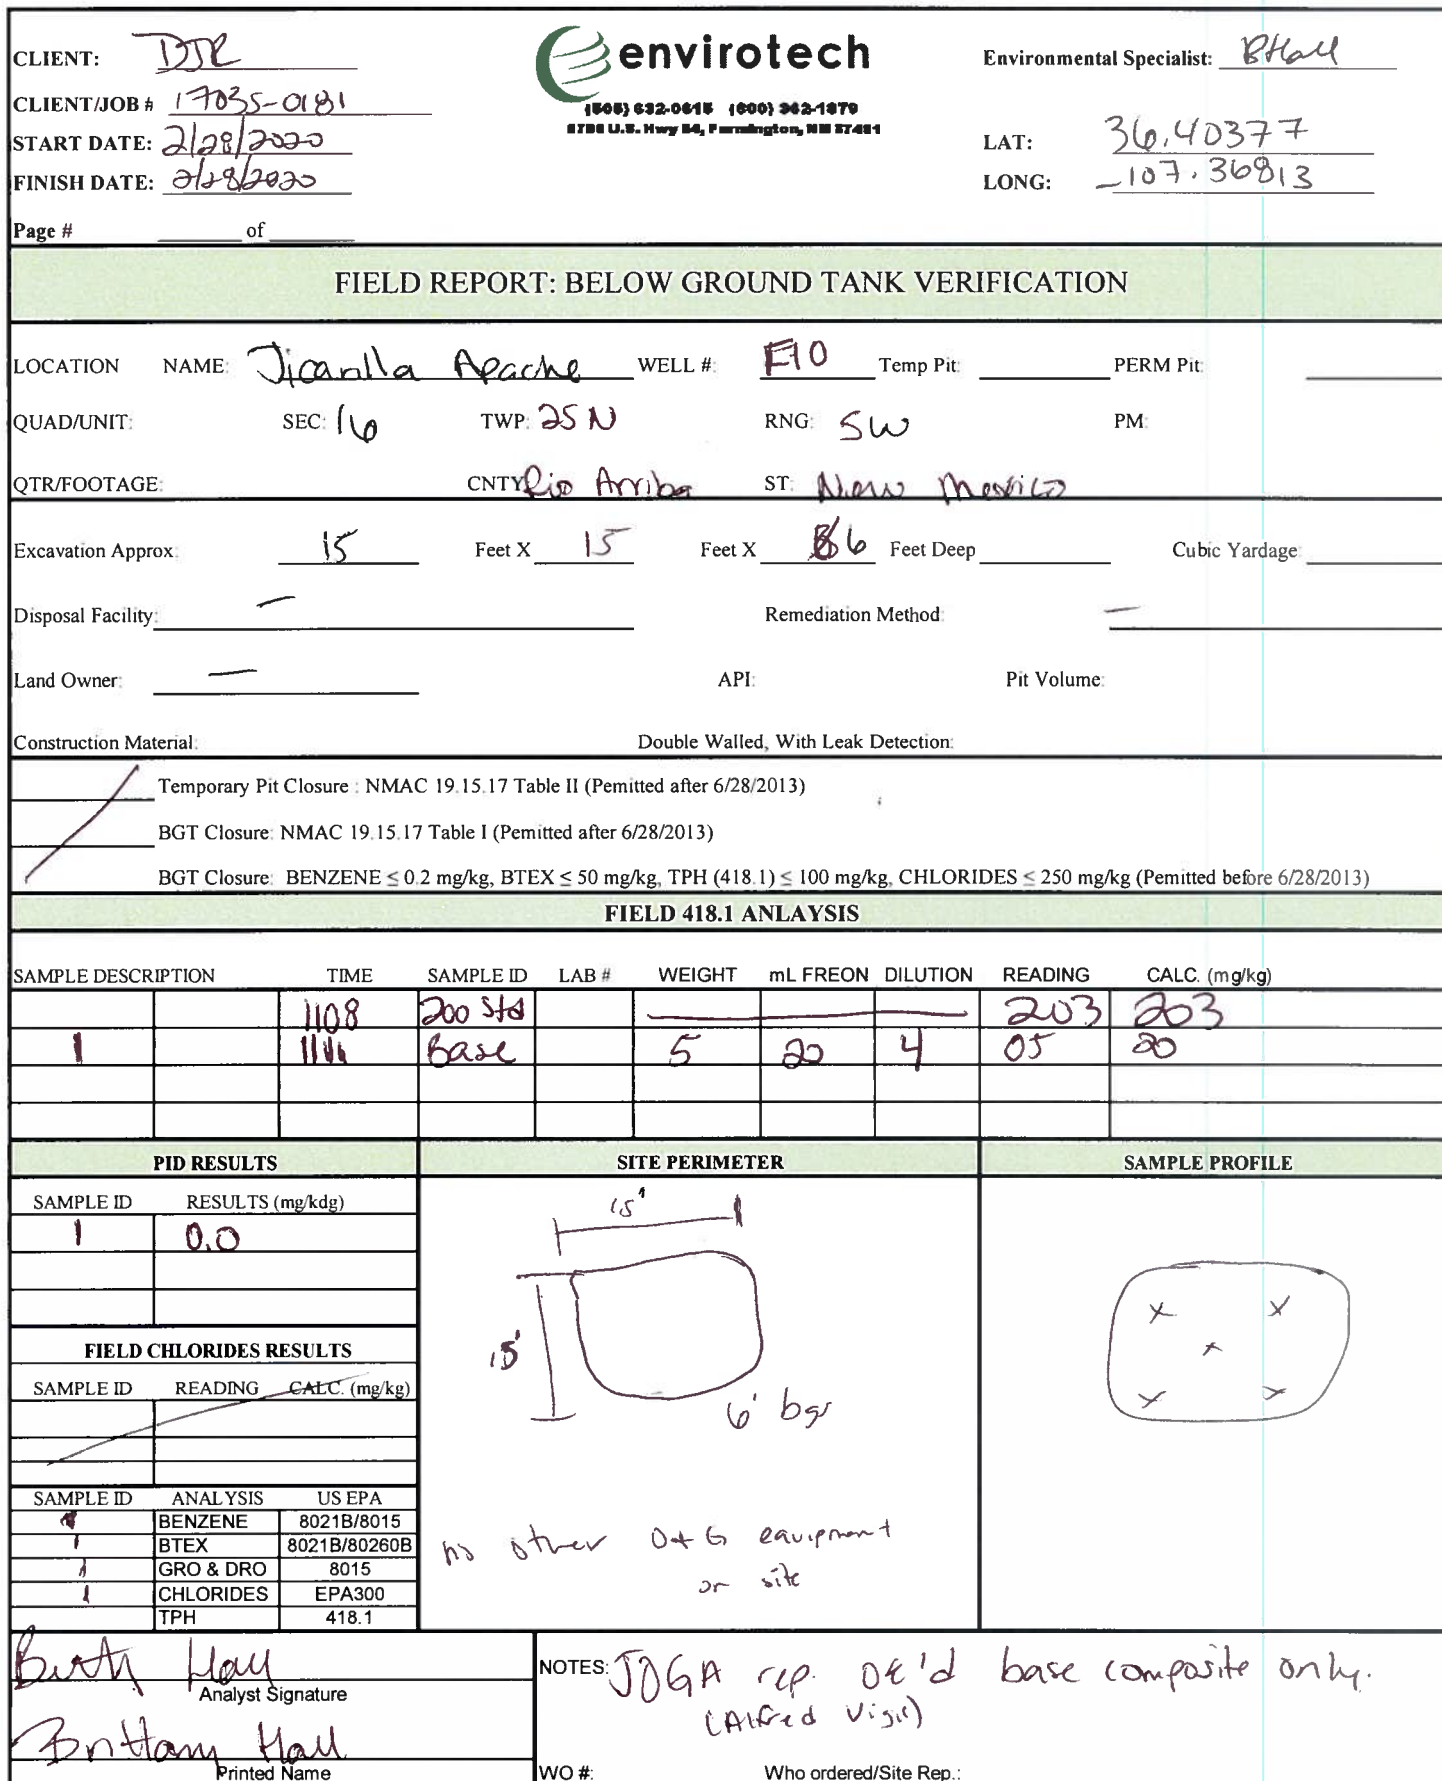 CLIENT: DJR
envirotech
Environmental Specialist: BHall
CLIENT/JOB # 17035-0181
(505) 632-0615 (800) 362-1879
5796 U.S. Hwy 64, Farmington, NM 87401
START DATE: 2/28/2020
LAT: 36.40377
FINISH DATE: 2/28/2020
LONG: -107.36813
Page # of
FIELD REPORT: BELOW GROUND TANK VERIFICATION
LOCATION NAME: Jicarilla Apache WELL #: F10 Temp Pit: PERM Pit:
QUAD/UNIT: SEC: 16 TWP: 25N RNG: 5W PM:
QTR/FOOTAGE: CNTY Rio Arriba ST: New Mexico
Excavation Approx: 15 Feet X 15 Feet X 6 Feet Deep Cubic Yardage:
Disposal Facility: — Remediation Method: —
Land Owner: — API: Pit Volume:
Construction Material: Double Walled, With Leak Detection:
Temporary Pit Closure : NMAC 19.15.17 Table II (Pemitted after 6/28/2013)
BGT Closure: NMAC 19.15.17 Table I (Pemitted after 6/28/2013)
BGT Closure: BENZENE ≤ 0.2 mg/kg, BTEX ≤ 50 mg/kg, TPH (418.1) ≤ 100 mg/kg, CHLORIDES ≤ 250 mg/kg (Pemitted before 6/28/2013)
FIELD 418.1 ANLAYSIS
SAMPLE DESCRIPTION TIME SAMPLE ID LAB # WEIGHT mL FREON DILUTION READING CALC. (mg/kg)
1108 200 Std 203 203
1 Base 5 20 4 05 20
PID RESULTS SITE PERIMETER SAMPLE PROFILE
SAMPLE ID RESULTS (mg/kdg)
1 0.0
15'
15'
6' bgs
FIELD CHLORIDES RESULTS
SAMPLE ID READING CALC. (mg/kg)
SAMPLE ID ANALYSIS US EPA
1 BENZENE 8021B/8015
1 BTEX 8021B/80260B
1 GRO & DRO 8015
1 CHLORIDES EPA300
TPH 418.1
no other O+G equipment
on site
Analyst Signature
Brittany Hall
Printed Name
NOTES: JOGA rep. OK'd base composite only.
(Alfred Vigil)
WO #: Who ordered/Site Rep.: